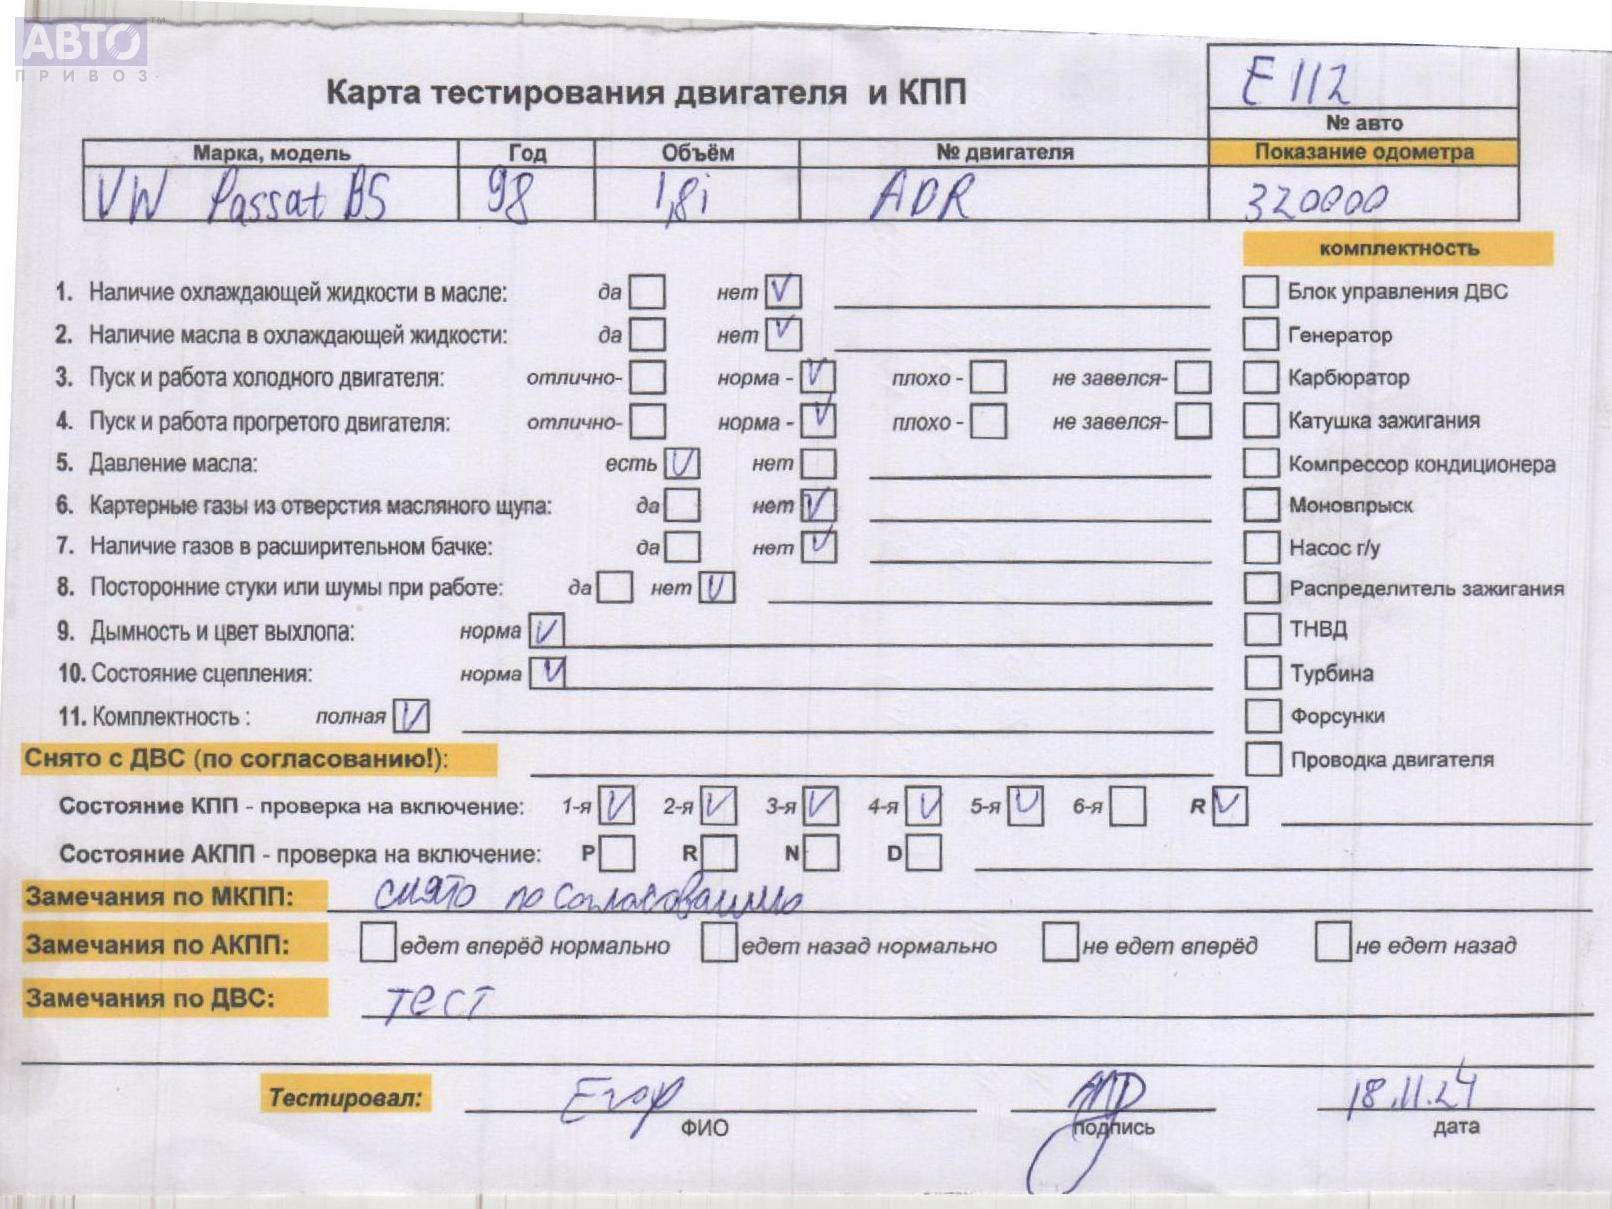 АВТО™
ПРИВОЗ
Карта тестирования двигателя и КПП
E112
№ авто
Марка, модель Год Объём № двигателя Показание одометра
VW Passat B5 98 1,8i ADR 320000
комплектность
1. Наличие охлаждающей жидкости в масле: да нет V Блок управления ДВС
2. Наличие масла в охлаждающей жидкости: да нет V Генератор
3. Пуск и работа холодного двигателя: отлично- норма - V плохо - не завелся- Карбюратор
4. Пуск и работа прогретого двигателя: отлично- норма - V плохо - не завелся- Катушка зажигания
5. Давление масла: есть V нет Компрессор кондиционера
6. Картерные газы из отверстия масляного щупа: да нет V Моновпрыск
7. Наличие газов в расширительном бачке: да нет V Насос г/у
8. Посторонние стуки или шумы при работе: да нет V Распределитель зажигания
9. Дымность и цвет выхлопа: норма V ТНВД
10. Состояние сцепления: норма V Турбина
11. Комплектность : полная V Форсунки
Снято с ДВС (по согласованию!): Проводка двигателя
Состояние КПП - проверка на включение: 1-я V 2-я V 3-я V 4-я V 5-я V 6-я R V
Состояние АКПП - проверка на включение: P R N D
Замечания по МКПП: снято по согласованию
Замечания по АКПП: едет вперёд нормально едет назад нормально не едет вперёд не едет назад
Замечания по ДВС: тест
Тестировал: Егор 18.11.24
ФИО подпись дата